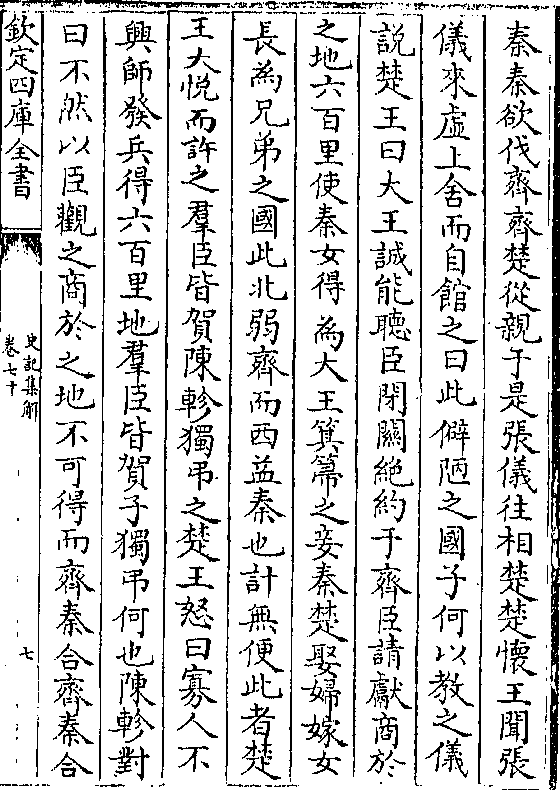 秦秦欲伐齊齊楚從親于是張儀往相楚楚懷王聞張
儀來虛上舍而自館之曰此僻陋之國子何以教之儀
說楚王曰大王誠能聽臣閉關絶約于齊臣請獻商於
之地六百里使秦女得為大王箕箒之妾秦楚娶婦嫁女
長為兄弟之國此北弱齊而西益秦也計無便此者楚
王大悅而許之羣臣皆賀陳軫獨弔之楚王怒曰寡人不
興師發兵得六百里地羣臣皆賀子獨弔何也陳軫對
曰不然以臣觀之商於之地不可得而齊秦合齊秦合
欽定四庫全書
史記集解
卷七十
七